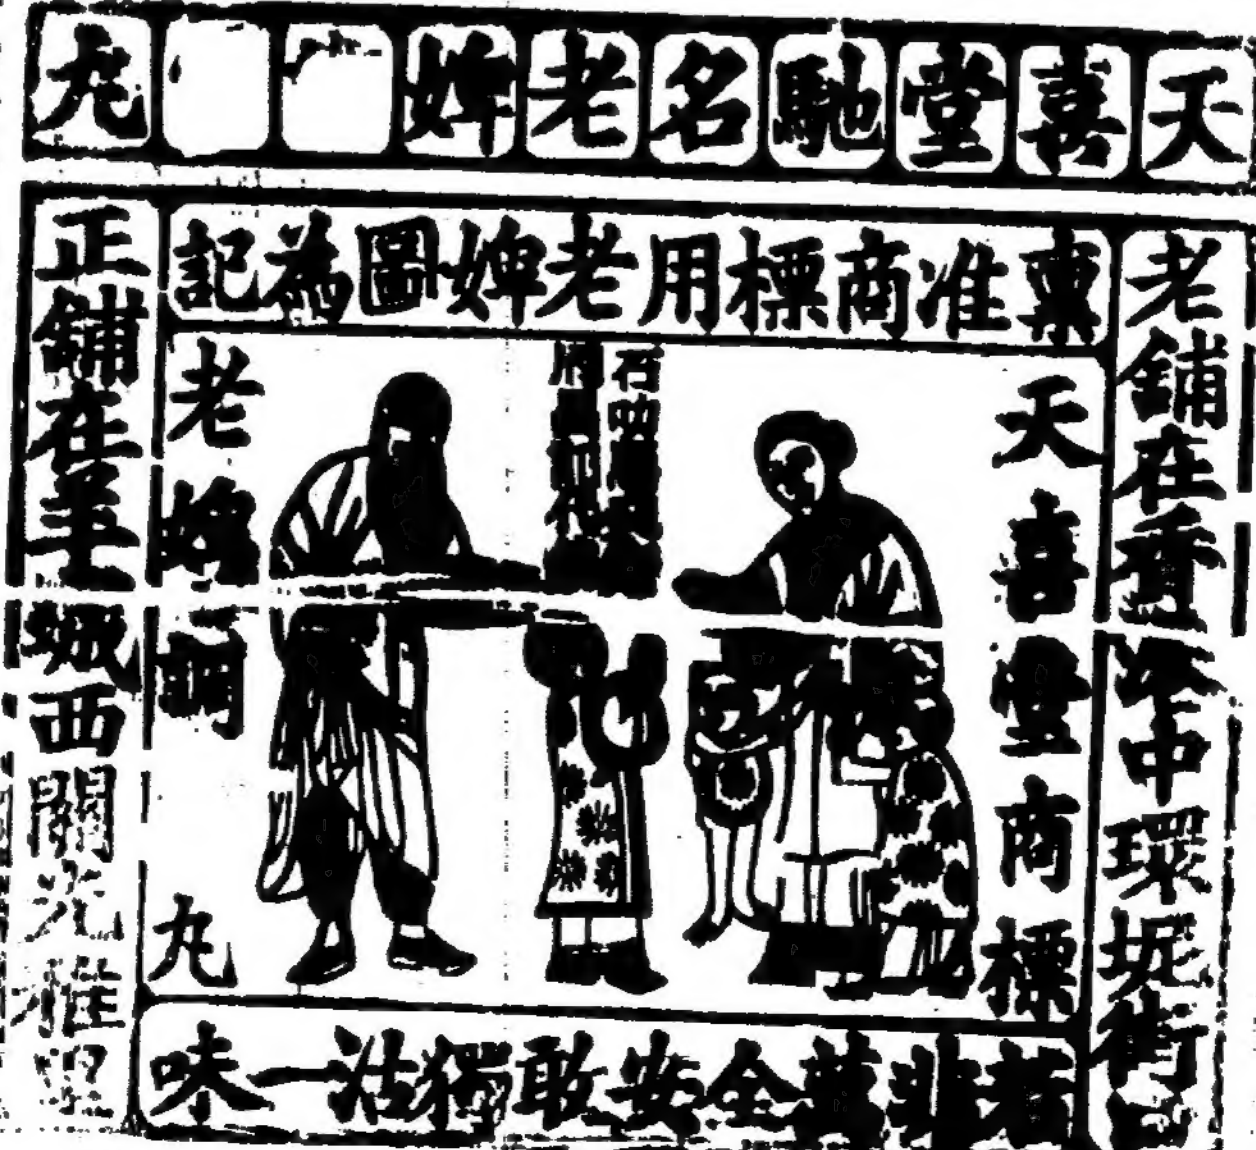 天喜堂馳名老婢丸
稟准商標用老婢圖為記
老鋪在香港中環坭街
天喜堂商標
石叻
老婢調丸
正鋪在羊城西關光雅里
若非萬全安敢獨沽一味